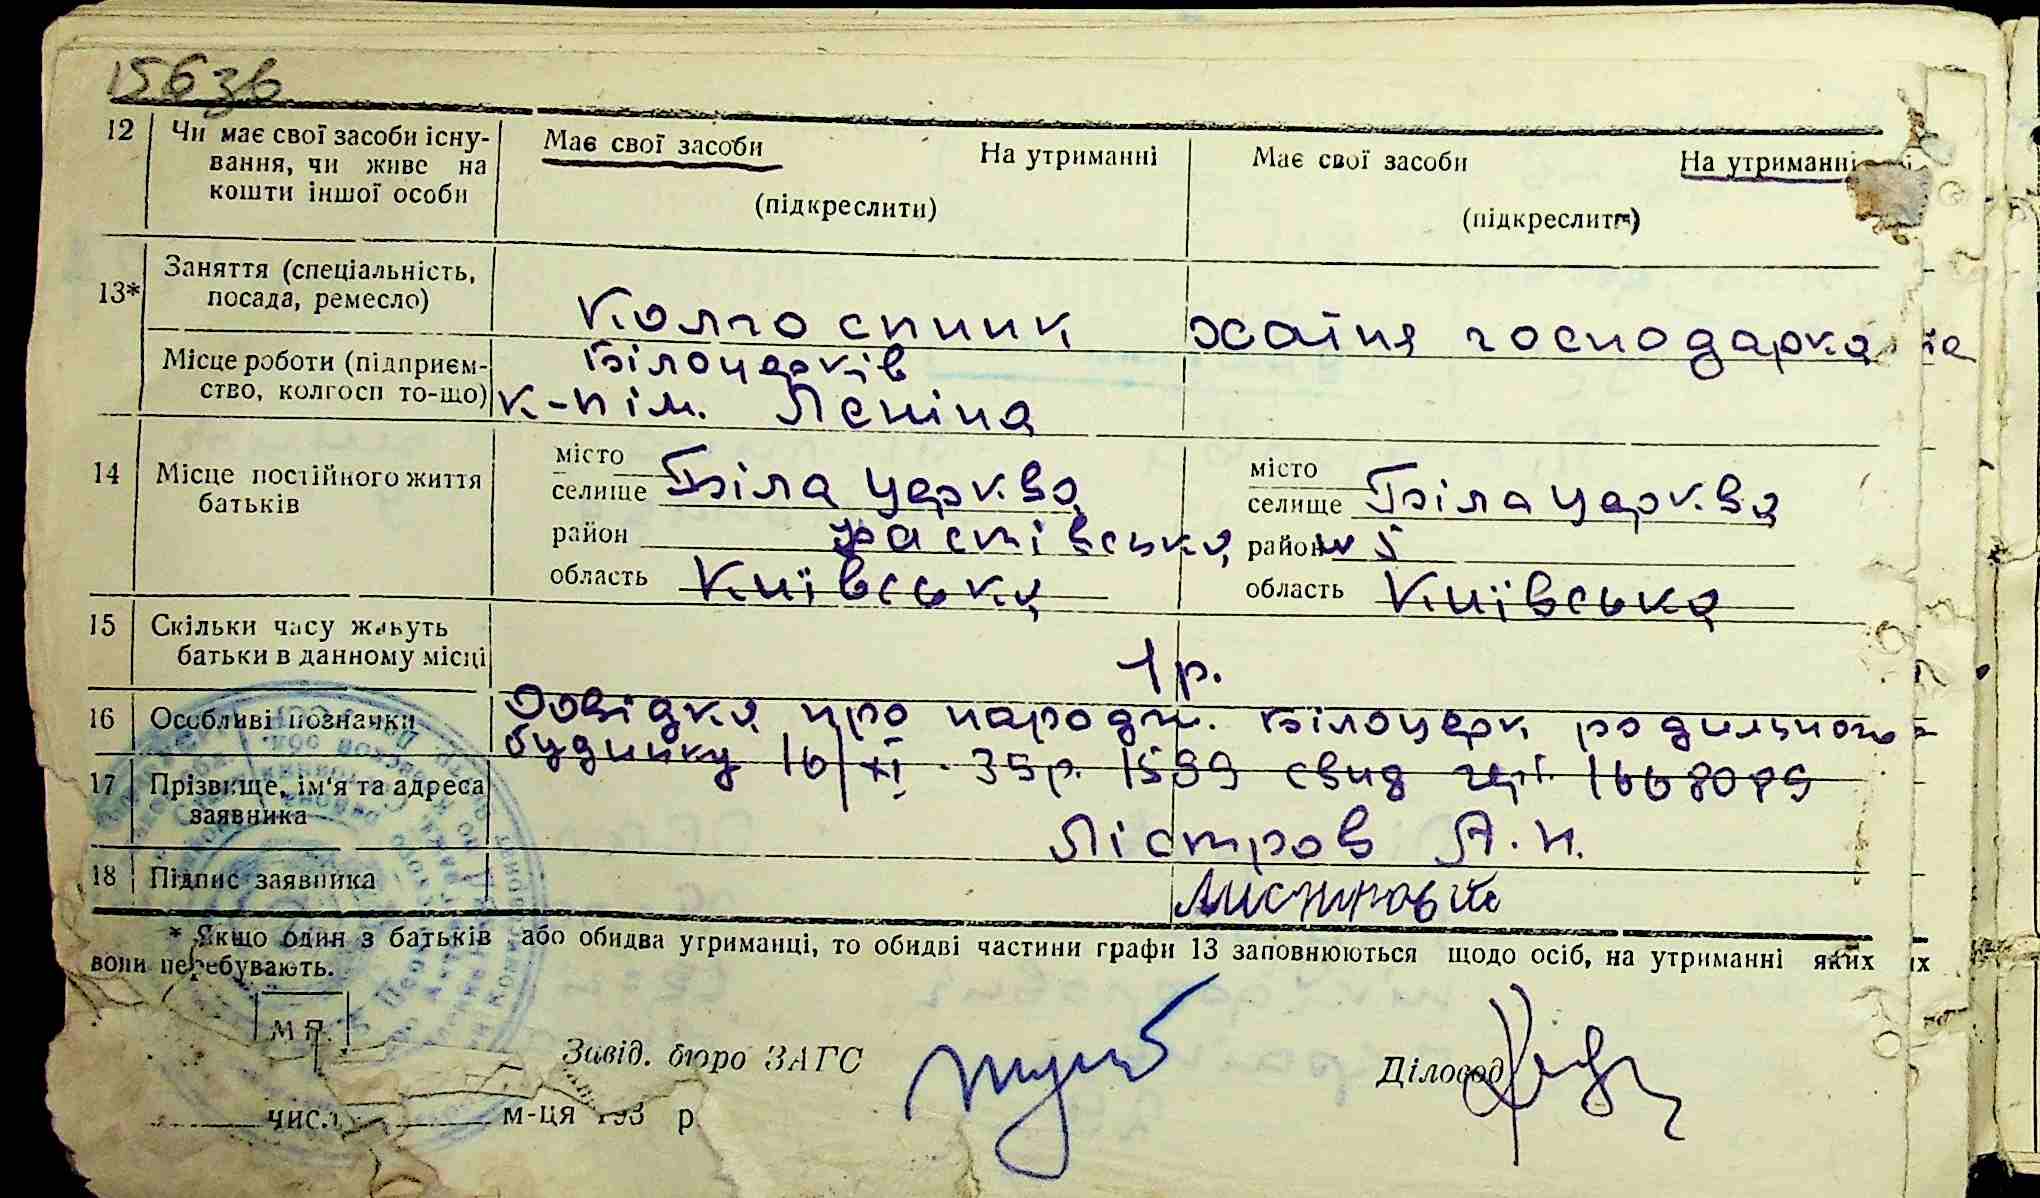 156зв
12 Чи має свої засоби існу-
вання, чи живе на
кошти іншої особи
Має свої засоби На утриманні
(підкреслити)
Має свої засоби На утриманні
(підкреслити)
13* Заняття (спеціальність,
посада, ремесло)
Колгоспник
хатня господарка
Місце роботи (підприєм-
ство, колгосп то-що)
Білоцерків
к-п ім. Леніна
14 Місце постійного життя
батьків
місто
селище Біла Церква
район Фастівська
область Київська
місто
селище Біла Церква
район №5
область Київська
15 Скільки часу живуть
батьки в данному місці
1 р.
16 Особливі позначки
Довідка про народж. Білоцерк родильного
будинку 16/XI - 35р. 1599 свид
17 Прізвище, ім'я та адреса
заявника
Лістров А. Н.
18 Підпис заявника
* Якщо один з батьків або обидва утриманці, то обидві частини графи 13 заповнюються щодо осіб, на утриманні яких
вони перебувають.
М П.
Завід. бюро ЗАГС
Діловод
числ м-ця 193 р